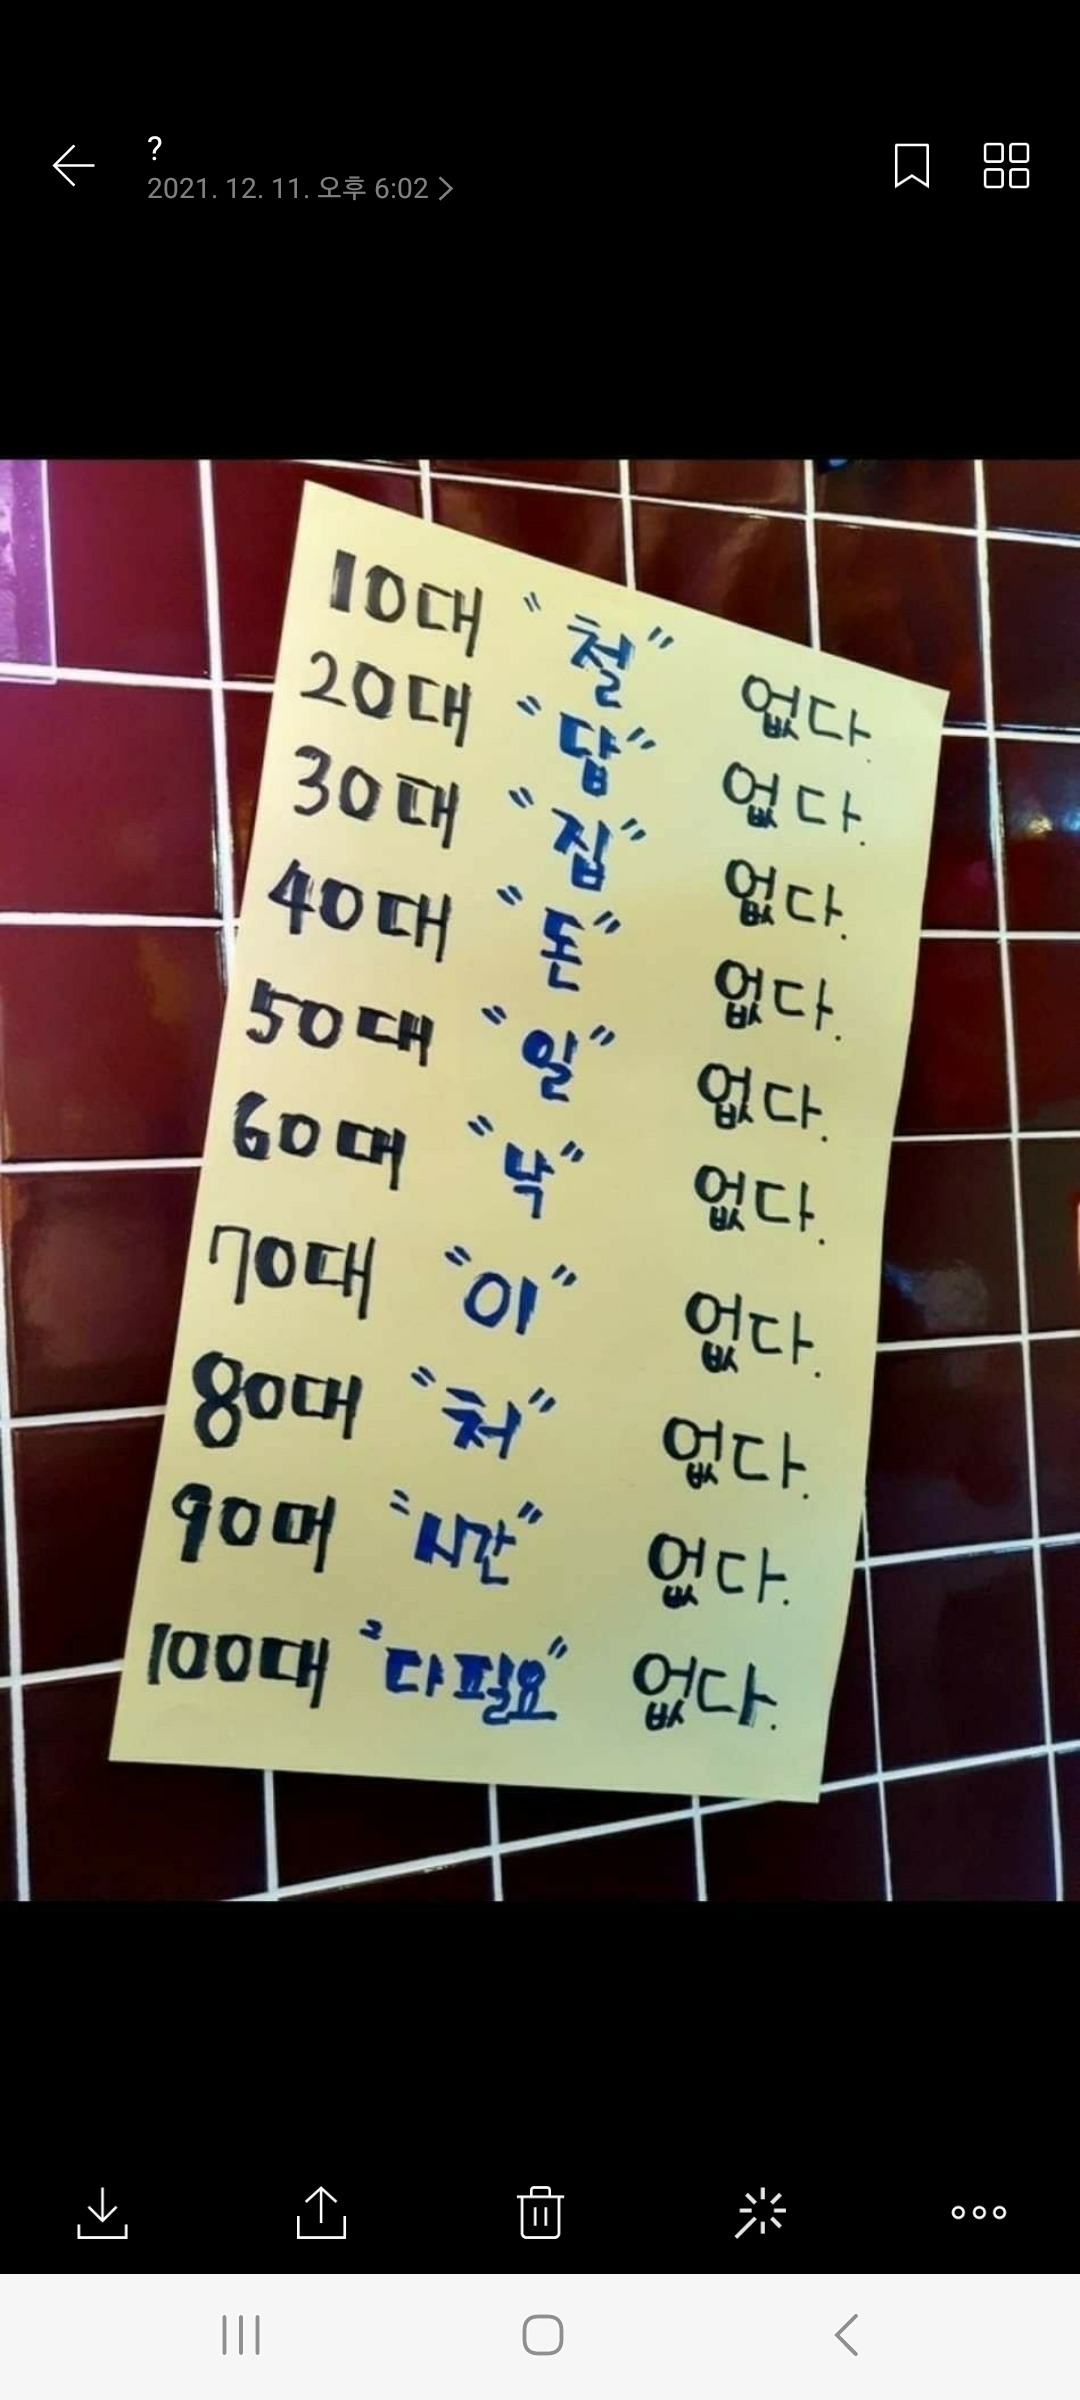 ?
2021. 12. 11. 오후 6:02 >
10대 "철" 없다.
20대 "답" 없다.
30대 "집" 없다.
40대 "돈" 없다.
50대 "일" 없다.
60대 "낙" 없다.
70대 "이" 없다.
80대 "처" 없다.
90대 "시간" 없다.
100대 "다필요" 없다.